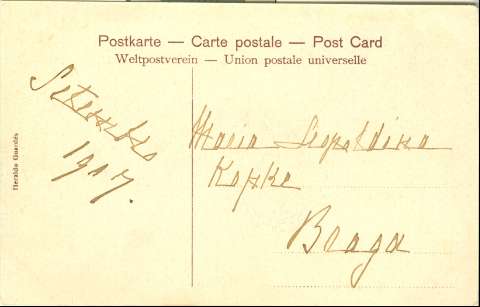 Postkarte — Carte postale — Post Card
Weltpostverein — Union postale universelle
Setembro
1907.
Maria Leopoldina
Kopke
Braga
Heraldo Guardés